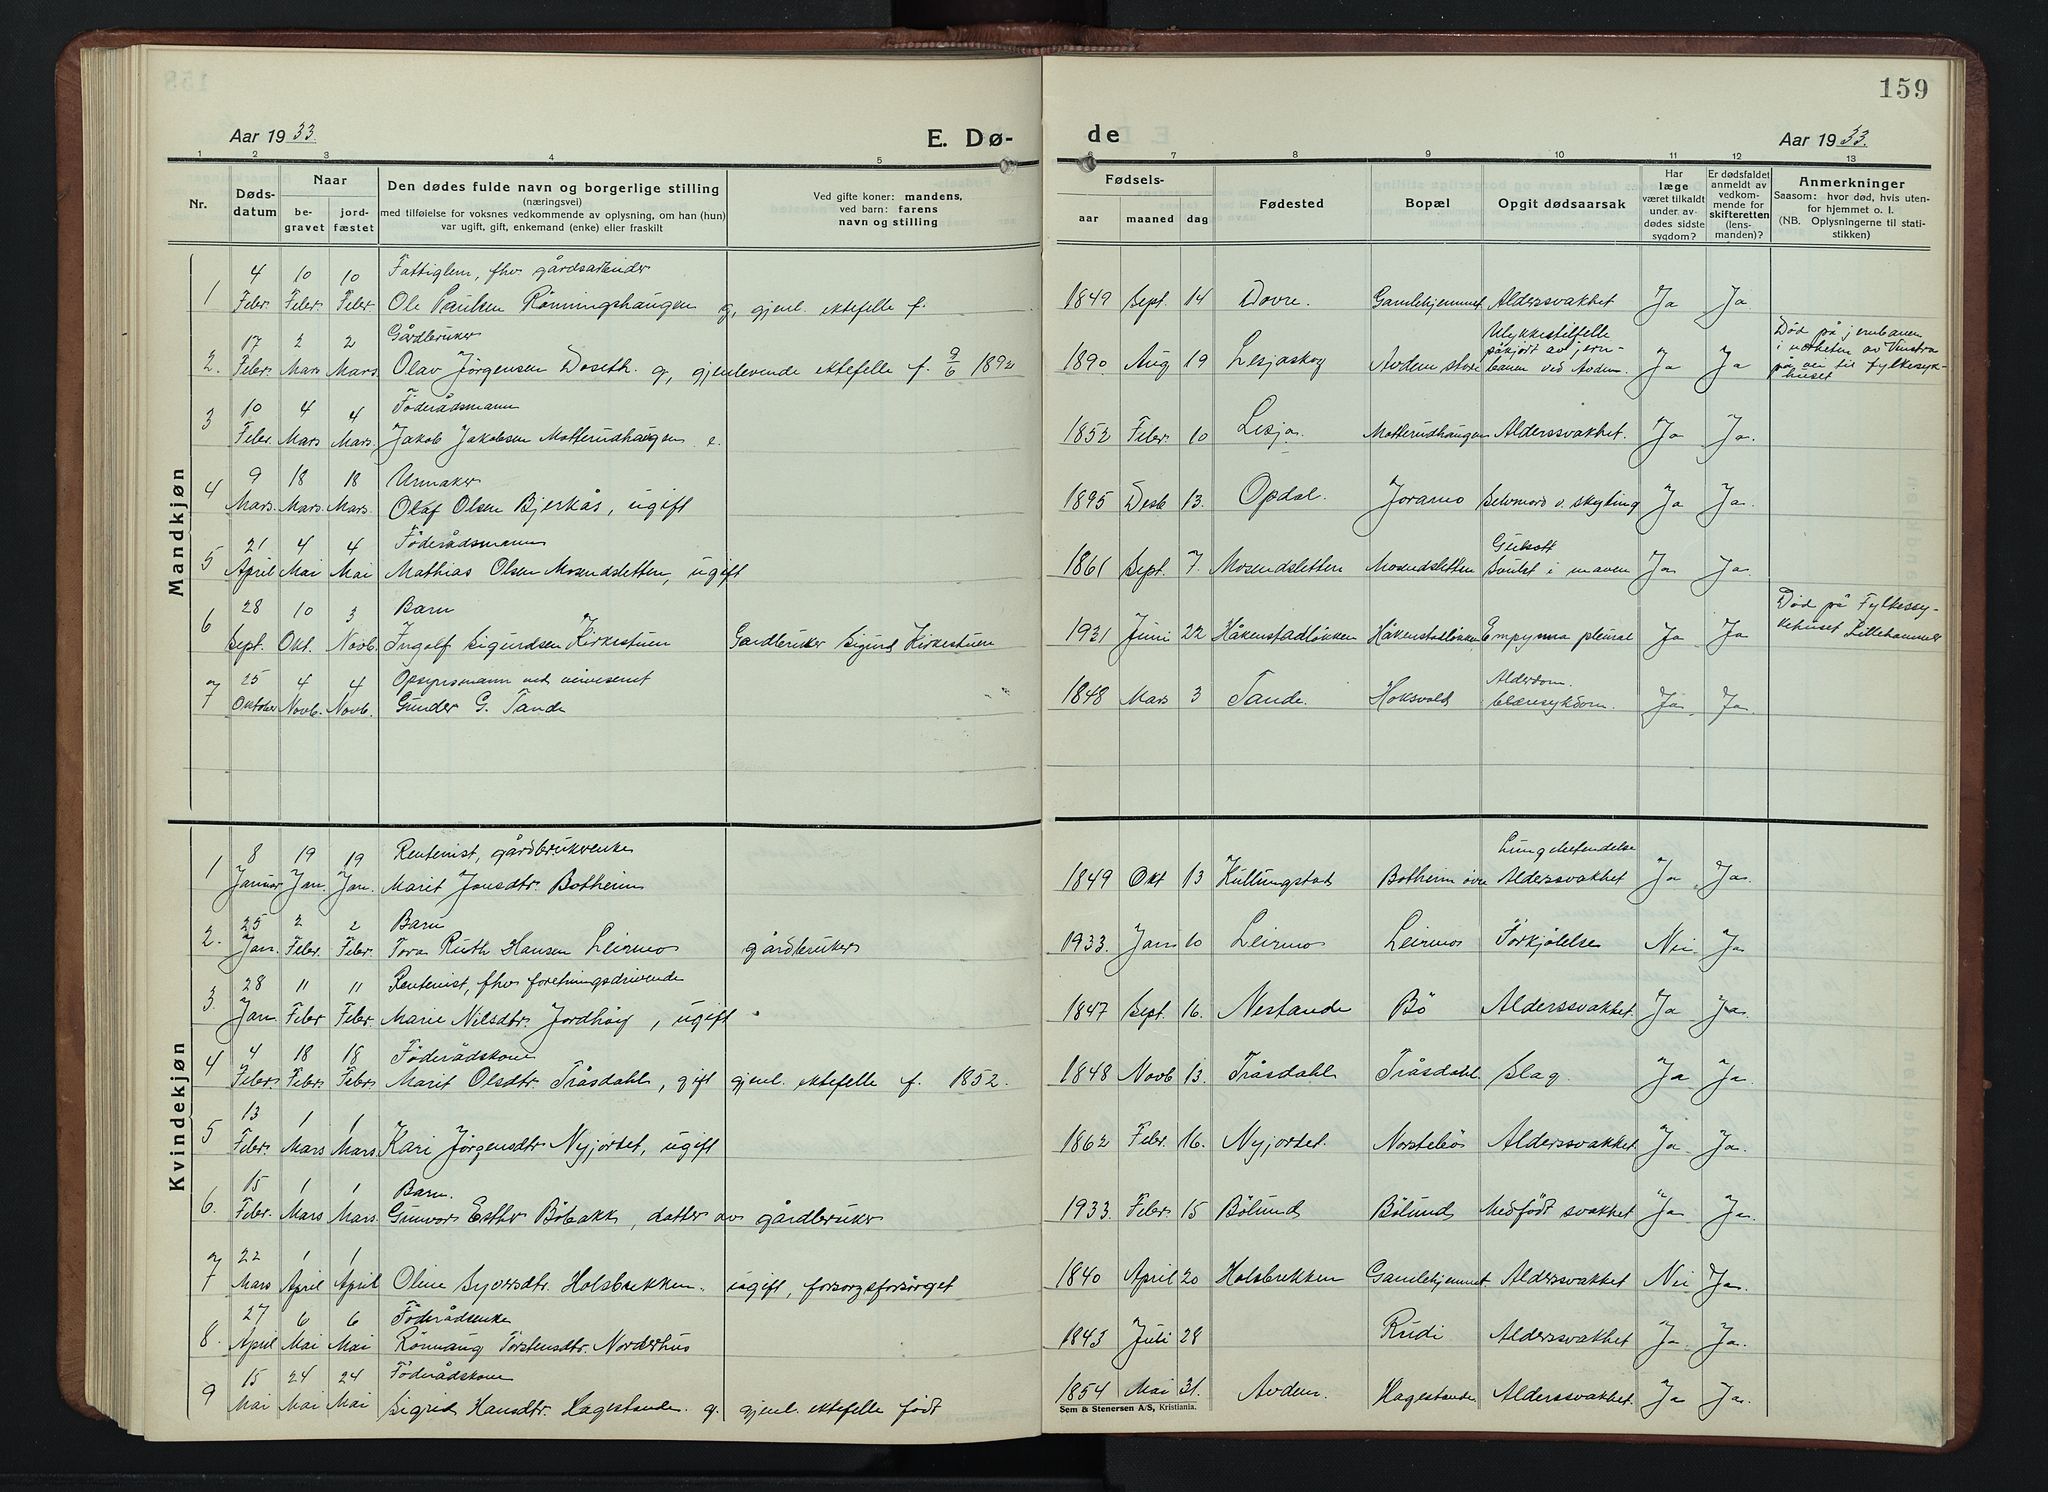 159
Aar 1933.
E. Dø-
de
Aar 1933.
1 2 3 4 5 6 7 8 9 10 11 12 13
Nr.
Døds-
datum
Naar
be-
gravet
jord-
fæstet
Den dødes fulde navn og borgerlige stilling
(næringsvei)
med tilføielse for voksnes vedkommende av oplysning, om han (hun)
var ugift, gift, enkemand (enke) eller fraskilt
Ved gifte koner: mandens,
ved barn: farens
navn og stilling
Fødsels-
aar maaned dag
Fødested
Bopæl
Opgit dødsaarsak
Har
læge
været tilkaldt
under av-
dødes sidste
sygdom?
Er dødsfaldet
anmeldt av
vedkom-
mende for
skifteretten
(lens-
manden)?
Anmerkninger
Saasom: hvor død, hvis uten-
for hjemmet o. l.
(NB. Oplysningerne til stati-
stikken)
Mandkjøn
4 10 10 Fattiglem, fhv. gårdsarbeider
1 Febr. Febr. Febr. Ole Paulsen Rönningshaugen g, gjenl. ektefelle f. 1849 Sept. 14 Dovre. Gamlehjemmet Alderssvakhet Ja Ja
17 2 2 Gårdbruker Ulykkestilfelle Död på jernbanen
påkjørt av jern- i nærheten av Vinstra
2. Febr. Mars Mars. Olav Jørgensen Doseth. g, gjenlevende ektefelle f. 9/6 1892 1890 Aug 19 Lesjaskog Avdem store banen ved Avdem. Ja Ja på vei til fylkesyk-
huset
10 4 4 Föderådsmann
3 Febr. Mars Mars. Jakob Jakobsen Motterudhaugen e. 1852 Febr. 10 Lesja. Motterudhaugen Alderssvakhet. Ja Ja.
9 18 18 Urmaker
4 Mars. Mars. Mars. Olaf Olsen Bjerkås, ugift 1895 Desb 13. Opdal. Joramo Selvmord v. skyting Ja Ja.
21 4 4 Föderådsmann Gulsott
5 April Mai Mai Mathias Olsen Mosendsletten, ugift 1861 Sept. 7. Mosendsletten Mosendsletten Svulst i maven Ja Ja.
28 10 3 Barn Död på Fylkessy-
6 Sept. Okt. Novb. Ingolf Sigurdsen Kirkestuen Gardbruker Sigurd Kirkestuen 1931 Juni 22 Håkenstadløkken Håkenstadløkken Empyema pleural Ja Ja kehuset Lillehammer
25 4 4 Opsynsmann ved veivesenet Alderdom.
7 Oktober Novb. Novb. Gunder G. Tande 1848 Mars 3 Tande. Hoksvold blæresykdom. Ja Ja.
Kvindekjøn
8 19 19 Rentenist, gårdbrukerenke Lungebetendelse
1 Januar Jan. Jan. Marit Jonsdtr. Bottheim 1849 Okt 13 Kullungstad Bottheim övre Alderssvakhet Ja Ja.
25 2 2 Barn
2. Jan. Febr. Febr. Tora Ruth Hansen Leirmo gårdbruker 1933. Jan 10 Leirmo Leirmo Forkjølelse Nei Ja
28 11 11 Rentenist, fhv forretningsdrivende
3 Jan Febr Febr. Marie Nilsdtr. Jordhöy, ugift 1847 Sept. 16. Nestande Bö Alderssvakhet Ja Ja.
4 18 18 Föderådskone
4 Febr. Febr. Febr. Marit Olsdtr. Tråsdahl, gift gjenl. ektefelle f. 1852. 1848 Novb 13. Tråsdahl Tråsdahl Slag Ja Ja.
13 1 1
5 Febr. Mars Mars. Kari Jørgensdtr. Nyjortet, ugift 1862 Febr. 16. Nyjortet. Norstebös Alderssvakhet. Ja Ja.
15 1 1 Barn.
6. Febr. Mars Mars. Gunvor Esther Böbakk, datter av gårdbruker 1933. Febr. 15 Bölund Bölund Medfödt svakhet Ja Ja.
22 1 1
7 Mars April April Oline Syversdtr. Holsbrekken. ugift, forsorgsforsörget 1840 April 20 Holsbrekken Gamlehjemmet. Alderssvakhet Nei Ja.
27 6 6 Föderådsenke
8. April Mai Mai Rönnaug Torstensdtr. Norderhus 1843 Juli 28 Rudi Alderssvakhet Ja Ja.
15 24 24 Föderådskone
9 Mai Mai Mai Sigrid Hansdtr. Hagestande. g. gjenl. ektefelle født 1854 Mai 31. Avdem. Hagestande Alderssvakhet. Ja Ja.
Sem & Stenersen A/S, Kristiania.